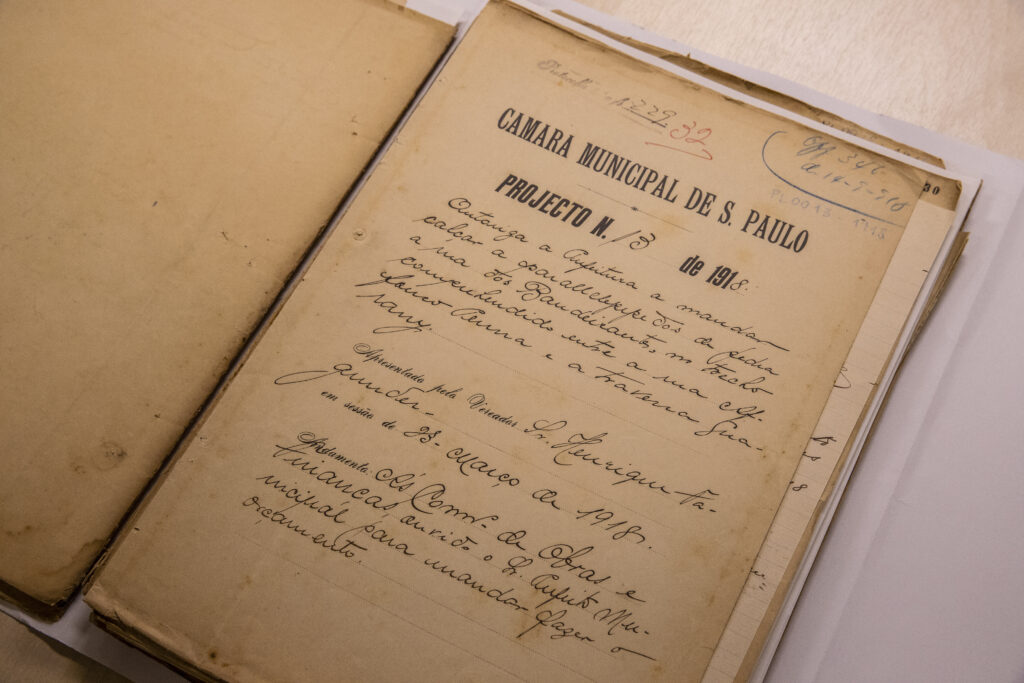 1229 32
Off 346
de 14-5-918
PL0013-1918
30
CAMARA MUNICIPAL DE S. PAULO
PROJECTO N. 13 de 1918.
Autoriza a Prefeitura a mandar
calçar a parallelepipedos de pedra
a rua dos Bandeirantes, no trecho
comprehendido entre a rua Af-
fonso Penna e a travessa Gua-
rany.
Apresentado pelo Vereador Sr. Henrique Fa-
gundes.
em sessão de 23 - Março de 1918.
Andamento: Ás Comms. de Obras e
Finanças, ouvido o Sr. Prefeito Mu-
nicipal para mandar fazer o
orçamento.